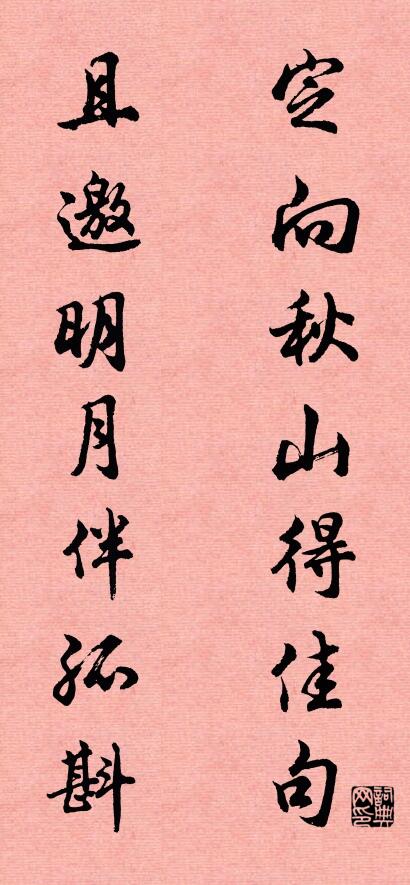 定向秋山得佳句
且邀明月伴孤斟
詞典网印